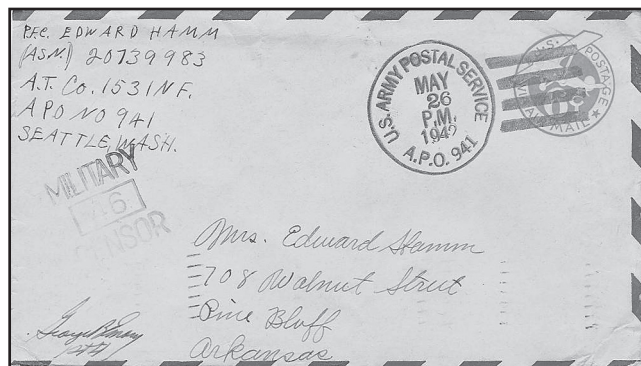 PFC. EDWARD HAMM
(ASN) 20739983
A.T. Co. 153 INF.
APO NO 941
SEATTLE, WASH.
MILITARY
CENSOR
U.S. ARMY POSTAL SERVICE
MAY
26
P.M.
1942
A.P.O. 941
U.S. POSTAGE
VIA AIR MAIL
6¢
Mrs. Edward Hamm
708 Walnut Street
Pine Bluff
Arkansas